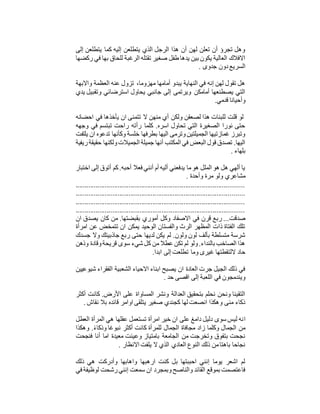 وهل تجرؤ أن تعلن لهن أن هذا الرجل الذي يتطلعن إليه كما يتطلعن إلى
الافلاك العالية يكون بين يدها طفل صغير تقتله الرغبة للحاق بها في ركضها
السريع دون جدوى .
هل تقول لهن إنه في النهاية يبدو أمامها مهزوما، تزول عنه العظمة والابهة
التي يصطنعها أمامكن ويرتمى إلى جانبي يحاول استرضائي وتقبيل يدي
وأحيانا قدمي.
لو قلت للبنات هذا لصعقن ولكن أي منهن لا تتمنى ان يأخذها في احضانه
حتى نورا الصغيرة التي تحاول أسره. كلما رأته راحت تبتسم في وجهه
وتبرز غمازتيها الجميلتين وترمى اليها بطرفها خلسة وكأنها تدعوه ان يلتفت
اليها. تصدق قول البعض في المكتب أنها جميلة الجميلات ولكنها خفيفة ريفية
بلهاء .
يا ألهي هل هو المثل هو ما يدفعني أليه أم أنني فعلا أحبه. كم أتوق إلى اختبار
مشاعري ولو مرة وأحدة .
................................................................................
................................................................................
................................................................................
................................................................................
صدقت... ربع قرن في الاصفاد وكل أموري بقبضتها. من كان يصدق ان
تلك الفتاة ذات المظهر الرث والفستان الوحيد يمكن ان تتمخض عن امرأة
شرسة متسلطة بألف لون ولون. لم يكن لديها حتى ربع جاذبيتك ولا جسدك
هذا الصاخب بالنداء. ولو لم تكن عطلا من كل شيء سوى قريحة وقادة وذهن
حاد لالتفتها غيرى وما تطلعت إلى ابدا.
في ذلك الجيل جرت العادة ان يصبح ابناء الاحياء الشعبية الفقراء شيوعيين
ويندمجون في اللعبة إلى اقصى حد .
التقينا ونحن نحلم بتحقيق العدالة ونشر المساواة على الأرض. كانت أكثر
ذكاء منى وهكذا انصعت لها كجندي صغير يتلقى اوامر قائده بلا نقاش .
انه ليس سوى دليل دامغ على ان خير امرأة تستعمل عقلها هي المرأة العطل
من الجمال وكلما زاد مجافاة الجمال للمرأة كانت أكثر نبوغا وذكاء. وهكذا
نجحت بتفوق وتخرجت من الجامعة بامتياز وعينت معيدة اما أنا فنجحت
نجاحا باهتا من ذلك النوع العادي الذي لا يلفت الانظار .
لم اشعر يوما إنني احببتها بل كنت ارهبها واهابها وأدركت هي ذلك
فاعتصمت بموقع القائد والناصح وبمجرد ان سمعت إنني رشحت لوظيفة في